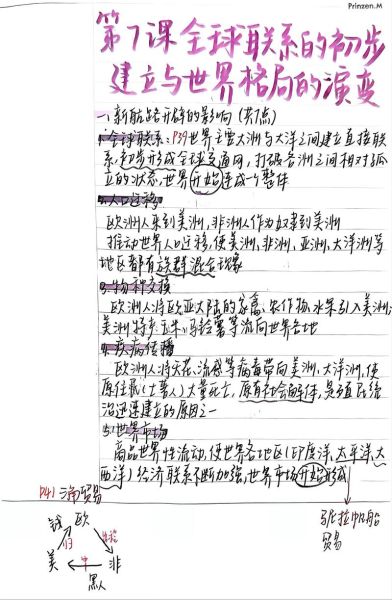 Prinzen.M
第7课 全球联系的初步
建立与世界格局的演变
一、新航路开辟的影响(共7点)
1.全球联系:P39世界主要大洲与大洋之间建立直接联
系,初步形成全球交通网,打破各洲之间相对孤
立的状态,世界开始连成一个整体
2.人口迁移
欧洲人来到美洲,非洲人作为奴隶到美洲
推动世界人口迁移,使美洲、非洲、亚洲、大洋洲等
地区都有族群混合现象
3.物种交换
欧洲人将欧亚大陆的家禽、农作物、水果引入美洲;
美洲特产玉米、马铃薯等流向世界各地
4.疾病传播
欧洲人将天花、流感等病毒带向美洲、大洋洲,使
原住民(土著人)大量死亡,原有社会的解体,是殖民统
治迅速建立的原因之一
5.世界市场
商品世界性流动,使世界各地区(印度洋、太平洋、大
西洋)经济联系不断加强,世界市场开始形成
P41 三角贸易
马尼拉大帆船
贸易
钱 欧
归 出程
美 中 非
黑人